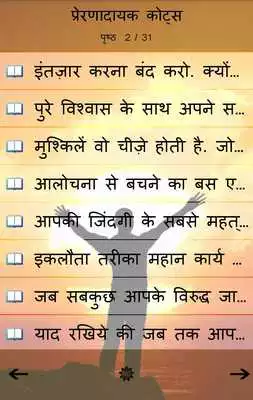 प्रेरणादायक कोट्स
पृष्ठ 2 / 31
इंतज़ार करना बंद करो. क्यों...
पुरे विश्वास के साथ अपने स...
मुश्किलें वो चीज़े होती है. जो...
आलोचना से बचने का बस ए...
आपकी जिंदगी के सबसे महत्...
इकलौता तरीका महान कार्य ...
जब सबकुछ आपके विरुद्ध जा...
याद रखिये की जब तक आप...